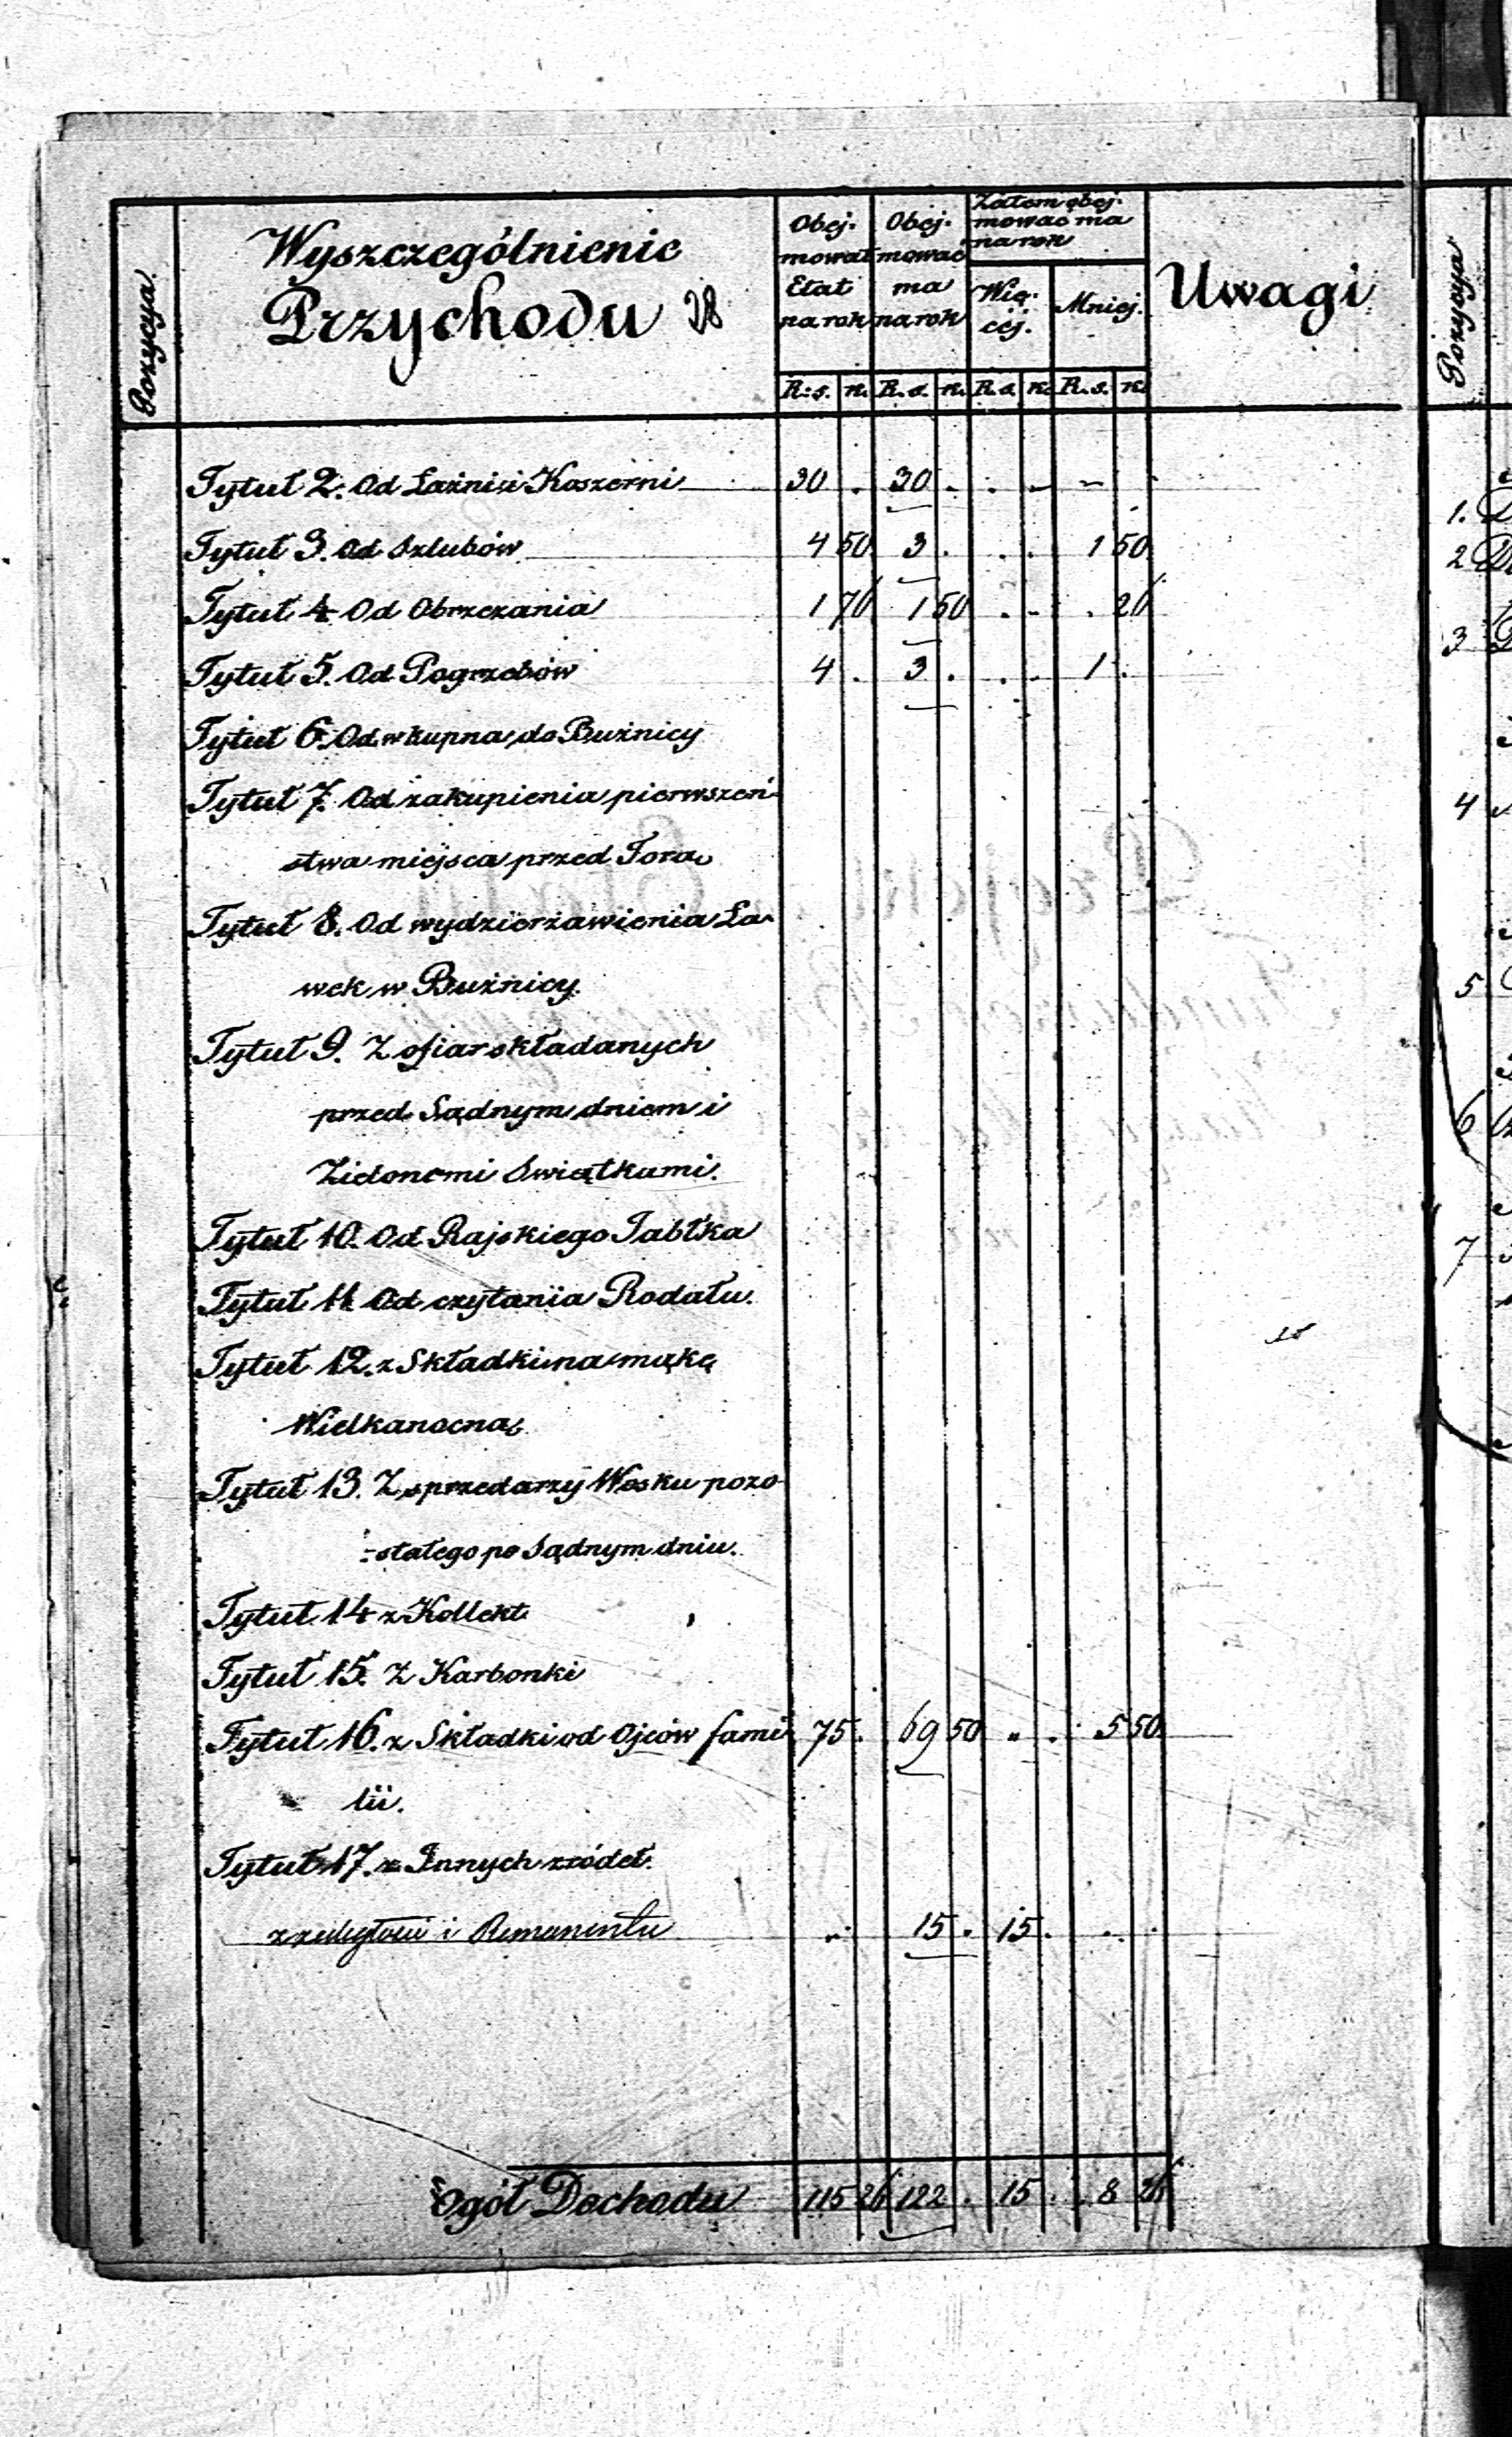 Pozycya.
Wyszczególnienie
Przychodu 28
Obej-
mował
Etat
na rok
Obej-
mować
ma
na rok
Zatem obej-
mować ma
na rok
Wię-
céj.
Mniej.
Uwagi
R. s. k. R. s. k. R. s. k. R. s. k.
Tytuł 2. Od Łaźni i Koszerni 30 . 30 . . - - .
Tytuł 3. Od Szlubów 4 50 3 . . . 1 50
Tytuł 4 Od Obrzezania 1 76 1 50 . - . 26
Tytuł 5. Od Pogrzebów 4 . 3 . . . 1 .
Tytuł 6. Od wkupna do Bużnicy
Tytuł 7. Od zakupienia pierwszeń-
stwa miejsca przed Torą
Tytuł 8. Od wydzierżawienia Ła-
wek w Bużnicy.
Tytuł 9. Z ofiar składanych
przed Sądnym dniem i
Zielonemi Swiątkami.
Tytuł 10. Od Rajskiego Jabłka
Tytuł 11. Od czytania Rodału.
Tytuł 12. z Składki na mąkę
Wielkanocną
Tytuł 13. Z sprzedarzy Wosku pozo-
-stałego po Sądnym dniu.
Tytuł 14 z Kollekt
Tytuł 15. Z Karbonki
Tytuł 16. z Składki od Ojców fami- 75 . 69 50 . . 5 50
lii.
Tytuł 17. z Innych źródeł.
i Remanentu . 15 . 15 . . .
Ogół Dochodu 115 26 122 . 15 . 8 26
Pozycya
1.
2
3
4
5
6
7